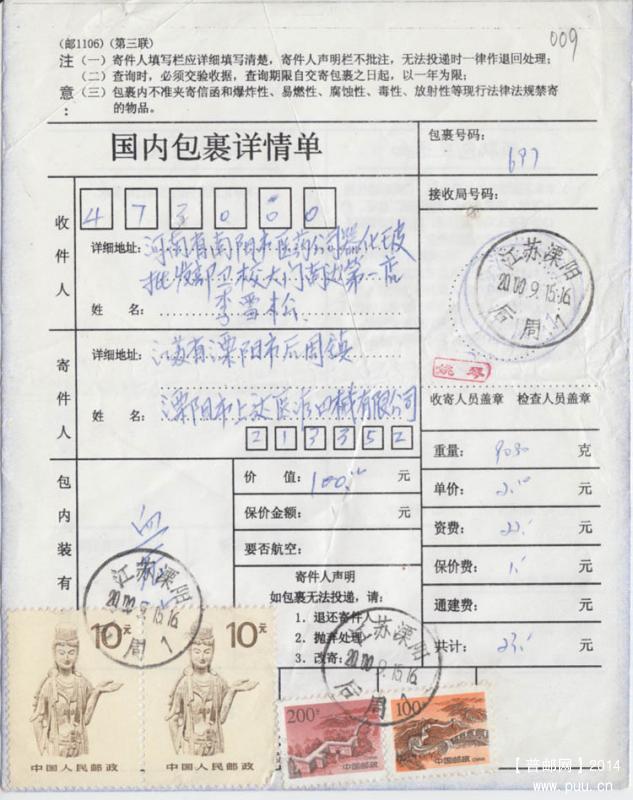 (邮1106)(第三联)
009
注 (一)寄件人填写栏应详细填写清楚,寄件人声明栏不批注,无法投递时一律作退回处理;
(二)查询时,必须交验收据,查询期限自交寄包裹之日起,以一年为限;
意: (三)包裹内不准夹寄信函和爆炸性、易燃性、腐蚀性、毒性、放射性等现行法律法规禁寄
的物品。
国内包裹详情单
包裹号码:
697
接收局号码:
收件人
473000
详细地址: 河南省南阳市医药公司器化玻
批发部卫校大门南边第一店
姓 名: 李雪松
江苏溧阳
2000.9.15.16
后周 1
寄件人
详细地址: 江苏省溧阳市后周镇
姓 名: 溧阳市上达医疗口械有限公司
213352
姚琴
收寄人员盖章 检查人员盖章
包内装有
价 值: 100. 元
保价金额: 元
要否航空:
寄件人声明
如包裹无法投递,请:
1. 退还寄件人
2. 抛弃处理
3. 改寄:
重量: 9030 克
单价: 元
资费: 22. 元
保价费: 1. 元
通建费: 元
共计: 23. 元
江苏溧阳
2000.9.15.16
周 1
江苏溧阳
2000.9.15.16
后周 1
10元
中国人民邮政
10元
中国人民邮政
200分
中国邮政
100分
中国邮政
【普邮网】2014
www.puu.cn